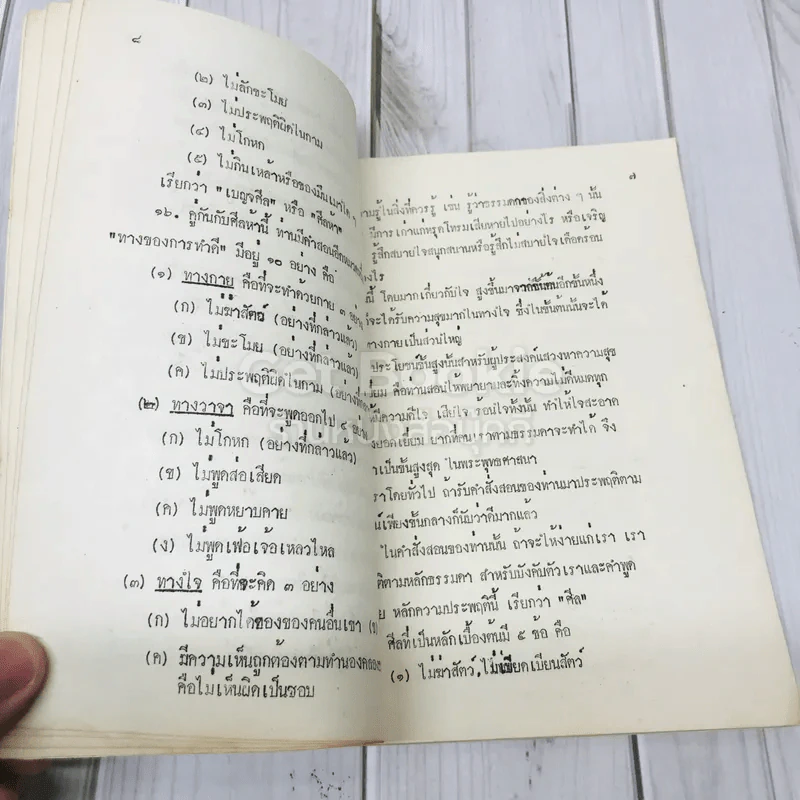 ๘
(๒) ไม่ลักขะโมย
(๓) ไม่ประพฤติผิดในกาม
(๔) ไม่โกหก
(๕) ไม่กินเหล้าหรือของมึนเมาใด ๆ
เรียกว่า "เบญจศีล" หรือ "ศีลห้า"
๑๖. คู่กันกับศีลห้านี้ ท่านมีคำสอน
"ทางของการทำดี" มีอยู่ ๑๐ อย่าง คือ
(๑) ทางกาย คือที่จะทำด้วยกาย ๓ อย่าง
(ก) ไม่ฆ่าสัตว์ (อย่างที่กล่าวแล้ว)
(ข) ไม่ขะโมย (อย่างที่กล่าวแล้ว)
(ค) ไม่ประพฤติผิดในกาม (อย่างที่
(๒) ทางวาจา คือที่จะพูดออกไป ๔ อย่าง
(ก) ไม่โกหก (อย่างที่กล่าวแล้ว)
(ข) ไม่พูดส่อเสียด
(ค) ไม่พูดหยาบคาย
(ง) ไม่พูดเพ้อเจ้อเหลวไหล
(๓) ทางใจ คือที่จะคิด ๓ อย่าง
(ก) ไม่อยากได้ของของคนอื่นเขา (ข)
(ค) มีความเห็นถูกต้องตามทำนองคลอง
คือไม่เห็นผิดเป็นชอบ
๗
ามรู้ในสิ่งที่ควรรู้ เช่น รู้ว่าธรรมดาของสิ่งต่าง ๆ นั้น
มีการ เก่าแก่ทรุดโทรมเสียหายไปอย่างไร หรือเจริญ
รู้สึกสบายใจสนุกสนานหรือรู้สึกไม่สบายใจเดือดร้อน
งไร
นี้ โดยมากเกี่ยวกับใจ สูงขึ้นมาจากขั้นต้นอีกขั้นหนึ่ง
ี่จะได้รับความสุขมากในทางใจ ซึ่งในขั้นต้นนั้นจะได้
ทางกายเป็นส่วนใหญ่
ประโยชน์ขั้นสูงนั้นสำหรับผู้ประสงค์แสวงหาความสุข
เยี่ยม คือท่านสอนให้พยายามละทิ้งความไม่ดีหมดทุก
ห้มีความดีใจ เสียใจ ร้อนใจทั้งนั้น ทำให้ใจสะอาด
งยอดเยี่ยม ยากที่คนเราตามธรรมดาจะทำได้ จึง
าเป็นขั้นสูงสุด ในพระพุทธศาสนา
ราโดยทั่วไป ถ้ารับคำสั่งสอนของท่านมาประพฤติตาม
น์เพียงขั้นกลางก็นับว่าดีมากแล้ว
ในคำสั่งสอนของท่านนั้น ถ้าจะให้ง่ายแก่เรา เรา
ติตามหลักธรรมดา สำหรับบังคับตัวเราและคำพูด
ย หลักความประพฤตินี้ เรียกว่า "ศีล"
ศีลที่เป็นหลักเบื้องต้นมี ๕ ข้อ คือ
(๑) ไม่ฆ่าสัตว์, ไม่เบียดเบียนสัตว์